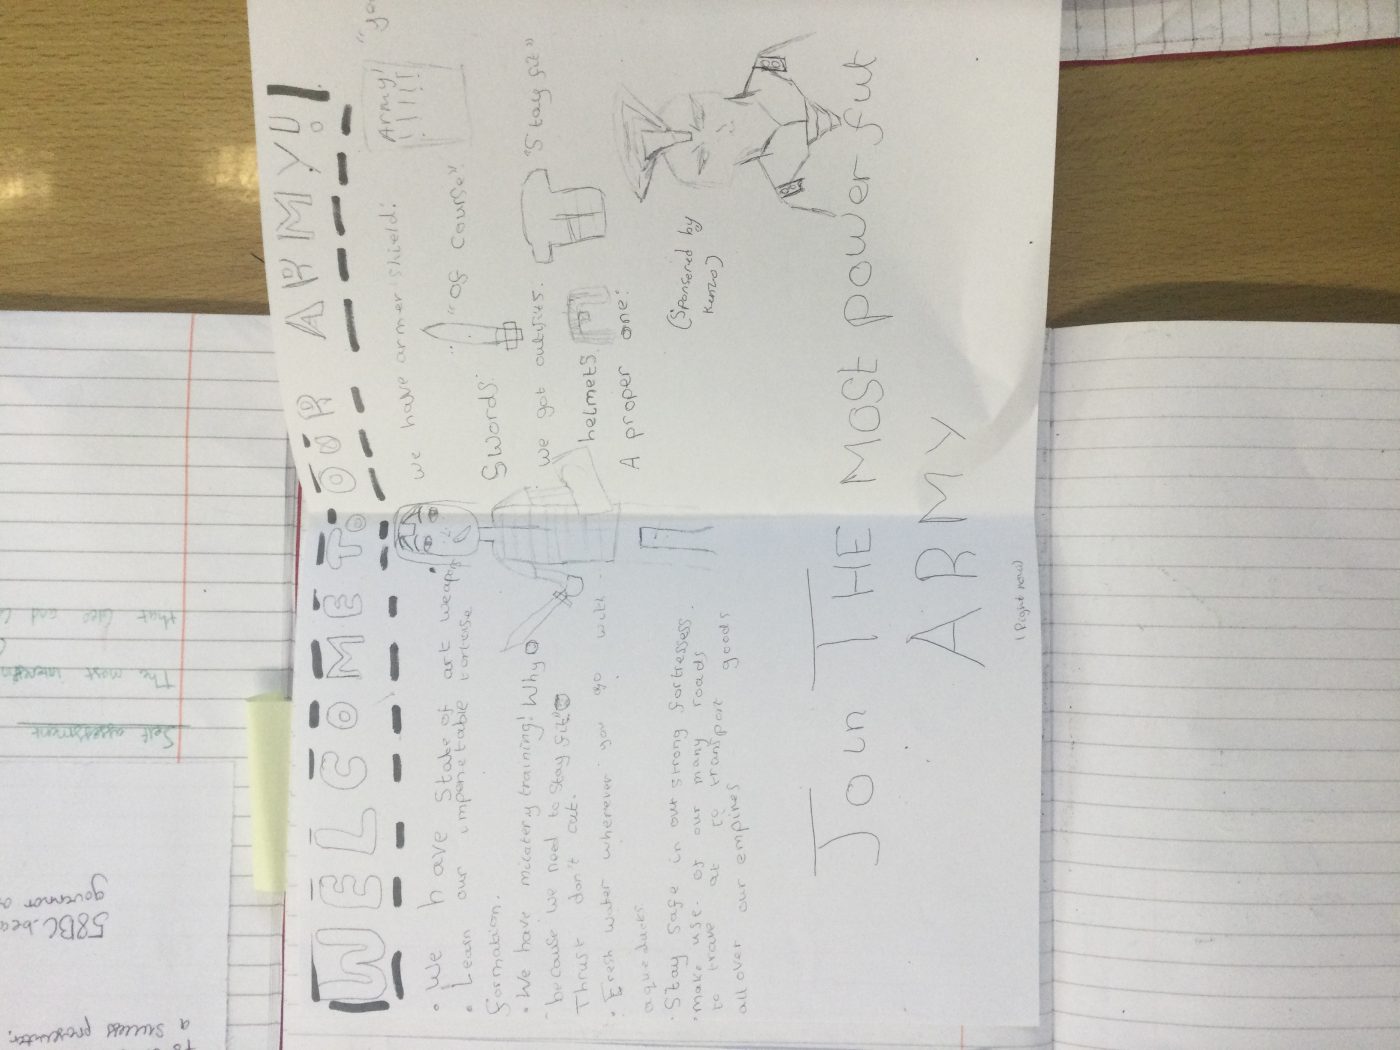 WELCOME TO OUR ARMY!
• We have State of art weapns
• Learn our impenetable tortoise
formation.
• We have milatery training! Why
because we need to stay fit!"
Thrust don't cut.
• Fresh water wherever you go with
aqueducts.
• Stay safe in our strong fortressess.
• make use of our many roads
to trave at to tranport goods
all over our empines
we have armer shield:
Army!
!!!!!!
Swords:
"of course"
we got outfits.
"Stay fit"
helmets
A proper one:
(Sponsered by
Kenzo)
Join THE MOST powerful
ARMY
(Right now)
Self assessment
The most interestin
that like and
58BC.
governor
a success prosecuter.